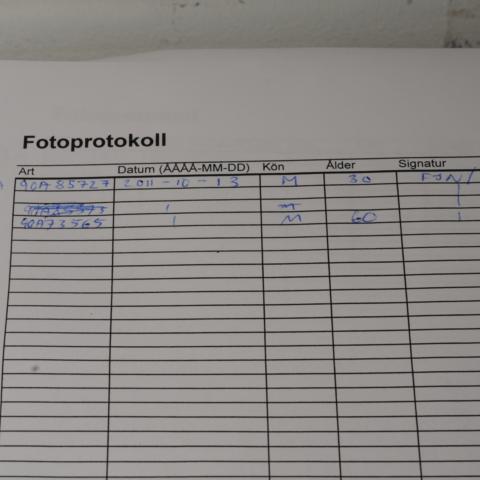 Fotoprotokoll
Art Datum (ÅÅÅÅ-MM-DD) Kön Ålder Signatur
90A85727 2011-10-13 M 30
M
90A73565 M 60